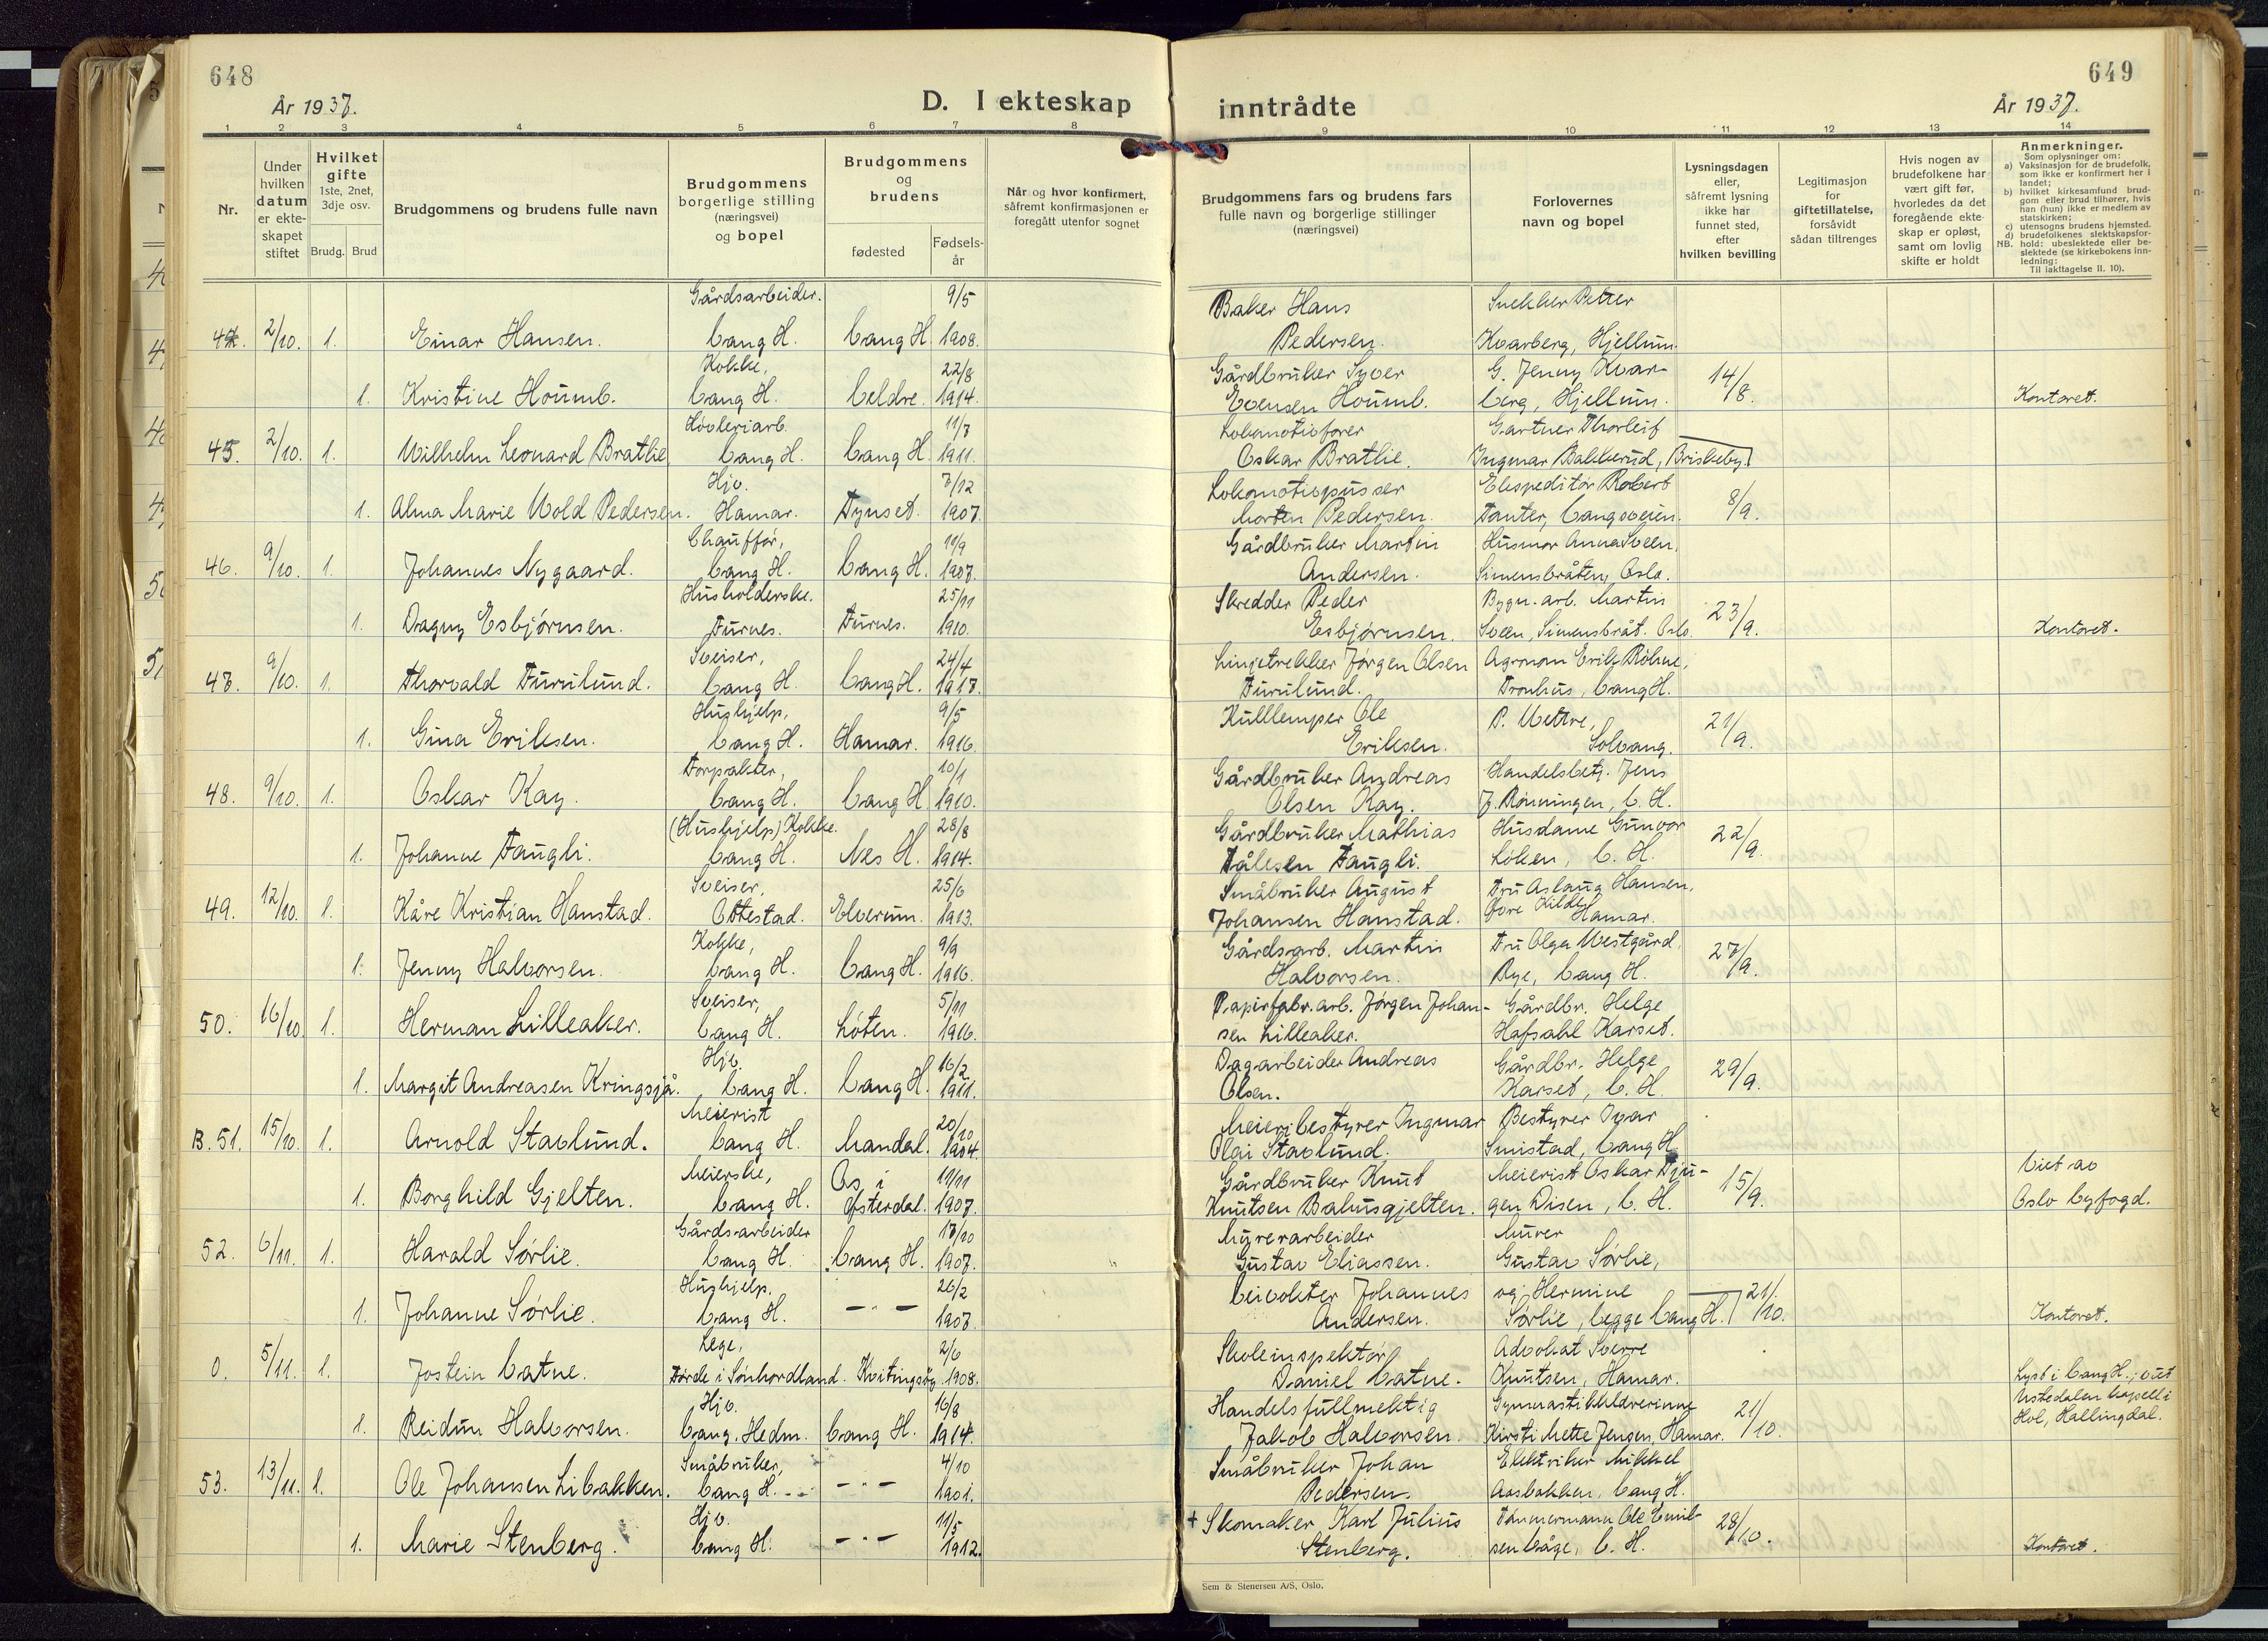 648
År 1937.
D. I ekteskap
1 2 3 4 5 6 7 8
Nr.
Under hvilken datum er ekteskapet stiftet
Hvilket gifte 1ste, 2net, 3dje osv.
Brudg. Brud
Brudgommens og brudens fulle navn
Brudgommens borgerlige stilling (næringsvei) og bopel
Brudgommens og brudens
fødested
Fødselsår
Når og hvor konfirmert, såfremt konfirmasjonen er foregått utenfor sognet
44. 2/10. 1. Einar Hansen. Gårdsarbeider. Vang H. Vang H. 9/5 1908.
1. Kristine Houmb. Kokke, Vang H. Veldre. 22/8 1914.
45. 2/10. 1. Vilhelm Leonard Bratlie Høvleriarb. Vang H. Vang H. 11/7 1911.
1. Alma Marie Vold Pedersen. Hjv. Hamar. Tynset. 7/12 1907.
46. 9/10. 1. Johannes Nygaard. Chauffør, Vang H. Vang H. 11/9 1907.
1. Dagny Esbjørnsen. Husholderske. Furnes. Furnes. 25/11 1910.
47. 9/10. 1. Thorvald Furulund. Sveiser, Vang H. Vang H. 24/4 1917.
1. Gina Eriksen. Hushjelp, Vang H. Hamar. 9/5 1916.
48. 9/10. 1. Oskar Kay. Forpakter, Vang H. Vang H. 10/1 1910.
1. Johanne Faugli. (Hushjelp) Kokke. Vang H. Nes H. 28/8 1914.
49. 12/10. 1. Kåre Kristian Hanstad. Sveiser, Ottestad. Elverum. 25/6 1913.
1. Jenny Halvorsen. Kokke, Vang H. Vang H. 9/9 1916.
50. 16/10. 1. Herman Lilleaker. Sveiser, Vang H. Løten. 5/11 1916.
1. Margit Andreasen Kringsjå. Hjv. Vang H. Vang H. 16/2 1911.
B. 51. 15/10. 1. Arnold Stavlund. Meierist Vang H. Mandal. 20/10 1904.
1. Borghild Gjelten. Meierske, Vang H. Os i Østerdal. 11/11 1907.
52. 6/11. 1. Harald Sørlie. Gårdsarbeider Vang H. Vang H. 17/10 1907.
1. Johanne Sørlie. Hushjelp. Vang H. — " — 26/2 1907.
0. 5/11. 1. Jostein Vatne. Lege, Førde i Sønhordland. Kvitingsøy. 2/6 1908.
1. Reidun Halvorsen. Hjv. Vang. Hedm. Vang H. 16/8 1914.
53. 13/11. 1. Ole Johansen Libakken. Småbruker, Vang H. — " — 4/10 1901.
1. Marie Stenberg. Hjv. Vang H. — " — 11/5 1912.
649
inntrådte
År 1937.
9 10 11 12 13 14
Brudgommens fars og brudens fars fulle navn og borgerlige stillinger (næringsvei)
Forlovernes navn og bopel
Lysningsdagen eller, såfremt lysning ikke har funnet sted, efter hvilken bevilling
Legitimasjon for giftetillatelse, forsåvidt sådan tiltrenges
Hvis nogen av brudefolkene har vært gift før, hvorledes da det foregående ekteskap er opløst, samt om lovlig skifte er holdt
Anmerkninger.
Som oplysninger om:
a) Vaksinasjon for de brudefolk, som ikke er konfirmert her i landet;
b) hvilket kirkesamfund brudgom eller brud tilhører, hvis han (hun) ikke er medlem av statskirken;
c) utensogns brudens hjemsted.
d) brudefolkenes slektskapsforhold: ubeslektede eller beslektede (se kirkebokens innledning:
NB. Til iakttagelse II. 10).
Baker Hans Pedersen. Snekker Petter Kvarberg, Hjellum.
Gårdbruker Syver Evensen Houmb. G. Jenny Kvarberg, Hjellum. 14/8. Kontoret.
Lokomotivfører Oskar Bratlie. Gartner Thorleif Ingmar Bakkerud, Briskeby.
Lokomotivpusser Morten Pedersen. Ekspeditør Robert Fauter, Vangsveien. 8/9.
Gårdbruker Martin Andersen. Husmor Anna Sveen, Simensbråten, Oslo.
Skredder Peder Esbjørnsen. Bygn. arb. Martin Sveen, Simensbråt. Oslo. 23/9. Kontoret.
Linjetrekker Jørgen Olsen Furulund. Agronom Erik Røhne, Tronhus, Vang H.
Kullemper Ole Eriksen. P. Vettre, Solvang. 21/9.
Gårdbruker Andreas Olsen Kay. Handelsbetj. Jens J. Rønningen, V. H.
Gårdbruker Mathias Tålesen Faugli. Husdame Gunvor Løken, V. H. 22/9.
Småbruker August Johansen Hanstad. Fru Aslaug Hansen, Hamar.
Gårdsarb. Martin Halvorsen. Fru Olga Vestgård, Bye, Vang H. 27/9.
Papirfabr. arb. Jørgen Johansen Lilleaker. Gårdbr. Helge Hafsahl Karset.
Dagarbeider Andreas Olsen. Gårdbr. Helge Karset, V. H. 29/9.
Meieribestyrer Ingmar Olai Stavlund. Bestyrer Ivar Smistad, Vang H.
Gårdbruker Knut Knutsen Bahusgjelten. Meierist Oskar Disen, V. H. 15/9. Viet av Oslo byfogd.
Myrerarbeider Gustav Eliassen. Murer Gustav Sørlie,
Veivokter Johannes Andersen. og Hermine Sørlie, begge Vang H. 21/10. Kontoret.
Skoleinspektør Daniel Vatne. Advokat Sverre Knutsen, Hamar.
Lyst i Vang H.; viet Ustedalen kapell i Hol, Hallingdal.
Handelsfullmektig Jakob Halvorsen. Gymnastikklærerinne Kirsti Mette Jensen, Hamar. 21/10.
Småbruker Johan Pedersen. Elektriker Mikkel Aasbakken, Vang H.
+ Skomaker Karl Julius Stenberg. Tømmermann Ole Emilsen Våge, V. H. 28/10. Kontoret.
Sem & Stenersen A/S, Oslo.